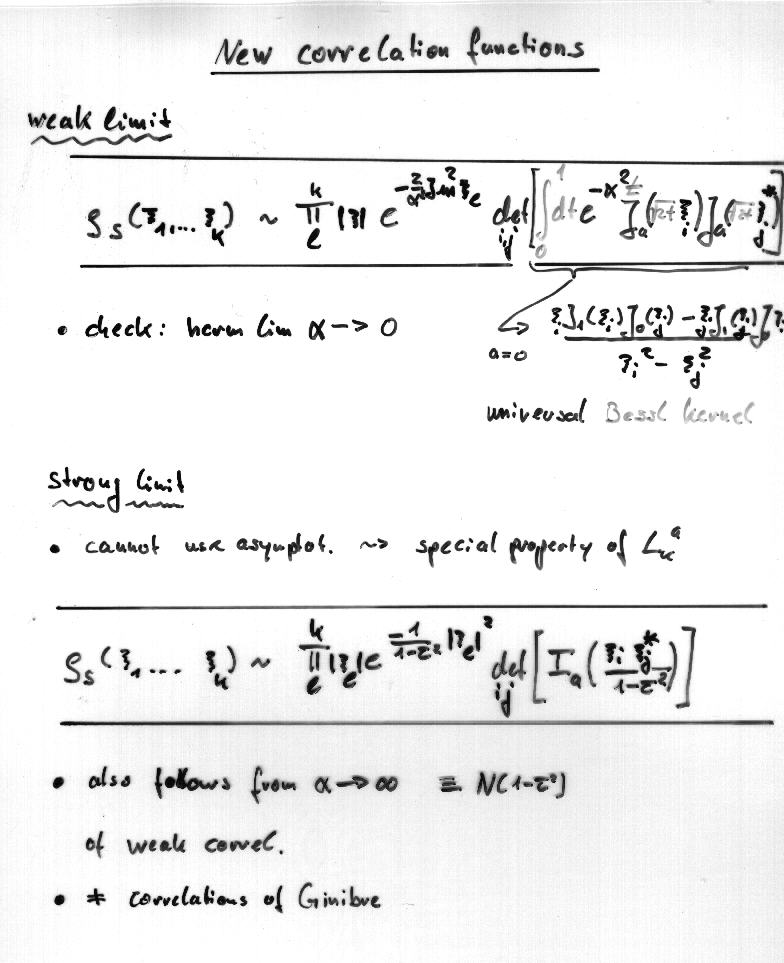 New correlation functions
weak limit
ρ_S(ξ_1,... ξ_k) ~ ∏_l^k |ξ| e^{-2/α² Im² ξ_l} det_{ij} [∫_0^1 dt e^{-α² t} J_a(√2t ξ_i) J_a(√2t ξ_j^*)]
• check: herm lim α → 0
a=0
ξ_i J_1(ξ_i) J_0(ξ_j) - ξ_j J_1(ξ_j) J_0
ξ_i² - ξ_j²
universal Bessl kernel
strong limit
• cannot use asymptot. ~> special property of L_k^a
ρ_S(ξ_1 ... ξ_k) ~ ∏_l^k |ξ_l| e^{-1/(1-τ²) |ξ_l|²} det_{ij} [I_a(ξ_i ξ_j^* / (1-τ²))]
• also follows from α → ∞ ≡ N(1-τ²)
of weak correl.
• ≠ correlations of Ginibre